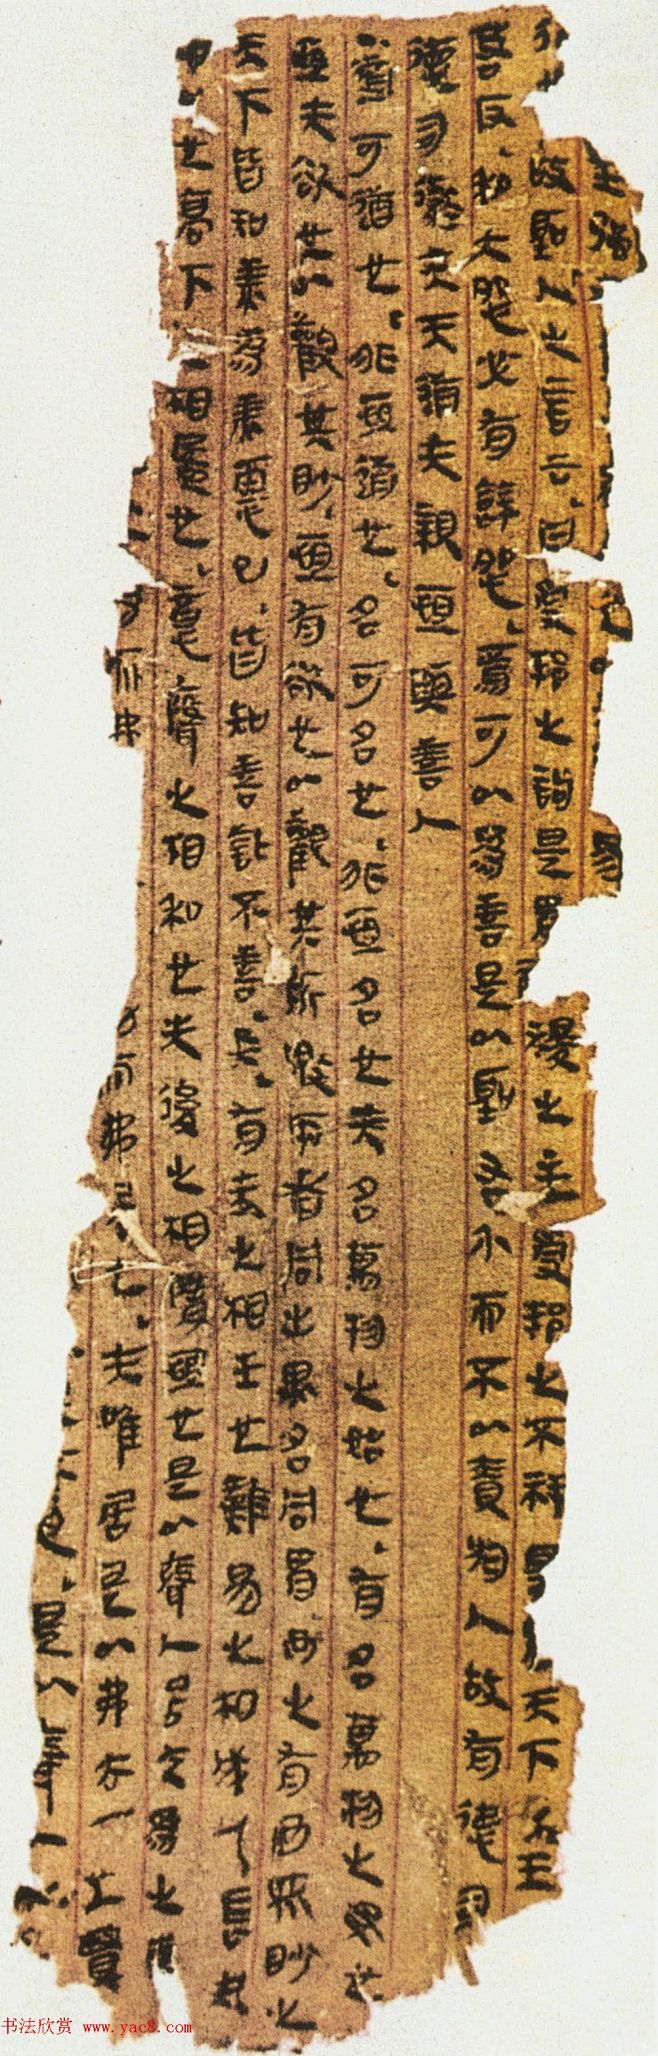 主強
故聖人之言云曰受邦之詬是胃稷之主受邦之不祥是胃天下之王
若反和大怨必有餘怨焉可以為善是以聖右介而不以責於人故有德司
德司徹夫天道无親恒與善人
道可道也非恒道也名可名也非恒名也无名萬物之始也有名萬物之母也
恒无欲也以觀其眇恒有欲也以觀其所噭兩者同出異名同胃玄之有玄眾眇之
天下皆知美為美惡已皆知善訾不善矣有无之相生也難易之相成也長短
刑也高下之相盈也意聲之相和也先後之相隋恒也是以聲人居无為之
而弗而弗居也夫唯居是以弗去不上賢
是以聲人
书法欣赏 www.yac8.com